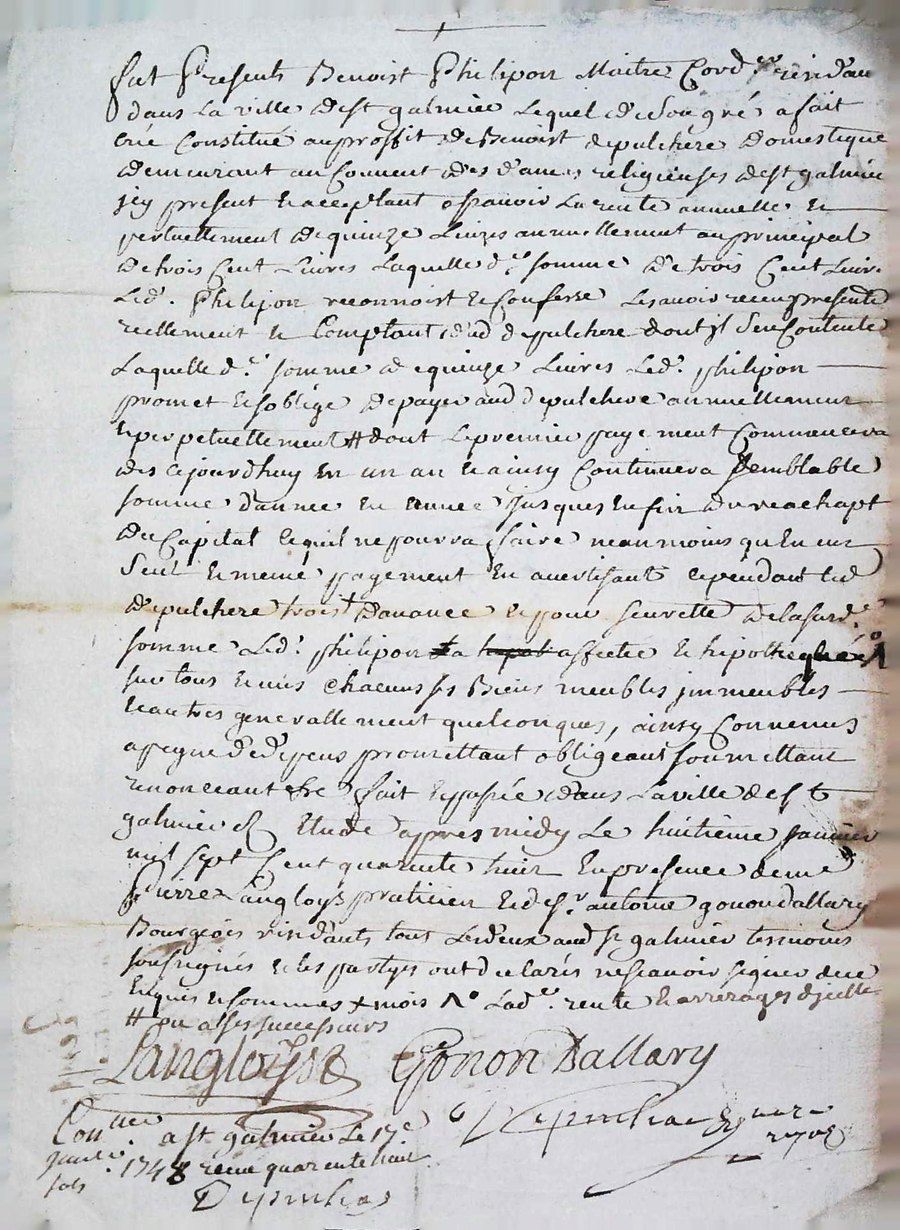 fut Present Benoist Philipon Maitre Cord.er residant
dans La ville de st galmier Lequel de son gré a fait
crée Constitué au proffit de Benoist depulchere Domestique
demeurant au Couvent des dames religieuses de st galmier
jcy present et acceptant assavoir La rente annuelle et
pertuellement de quinze Livres annuellement au principal
de trois Cent Livres Laquelle d.e somme de trois Cent Livr.
Led. Philipon reconnoist et Confesse Lesavoir receu presente
reellement et Comptant dud depulchere dont jl sen Contente
Laquelle d.e somme de quinze Livres Led. philipon
promet et soblige de payer aud depulchere annuellement
et perpetuellement # dont Le premier payement Commencera
des ce jourdhuy en un an et ainsy Continuera semblable
somme dannee en annee jusques enfin du reachapt
du Capital ce quil ne pourra faire neanmoins qu en un
seul et meme payement en avertisant cependant led
depulchere trois + davance et pour seurette de la susd.e
somme Led. philipon a affecté et hipothequé
sur tous et uns chacuns ses Biens meubles jmmeubles
et autres generallement quelconques, ainsy Convenus
a peyne de depens promettant obligeant soumettant
renonceant &c fait et passé dans La ville de st
galmier Etude appres midy Le huitieme janvier
mil sept Cent quarente huit en presence de me
pierre Langloys praticien et de sr. antoine gonon dallary
Bourgeois residants tous Les deux aud st galmier temoins
soussignés et les partyes ont declarés ne scavoir signer de ce
enquis et sommés + mois Lad.e rente et arrerages djcelle
# ou a ses successeurs
Langloys Gonon Dallary
Con.llee a st galmier Le 17.e
janv. 1748 receu quarente huit
sols